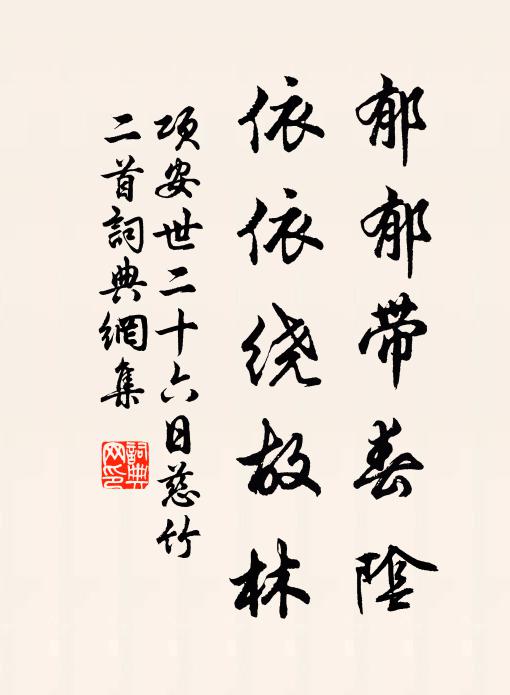 郁郁带春陰
依依绕故林
项安世二十六日慈竹
二首詞典網集
詞典網印